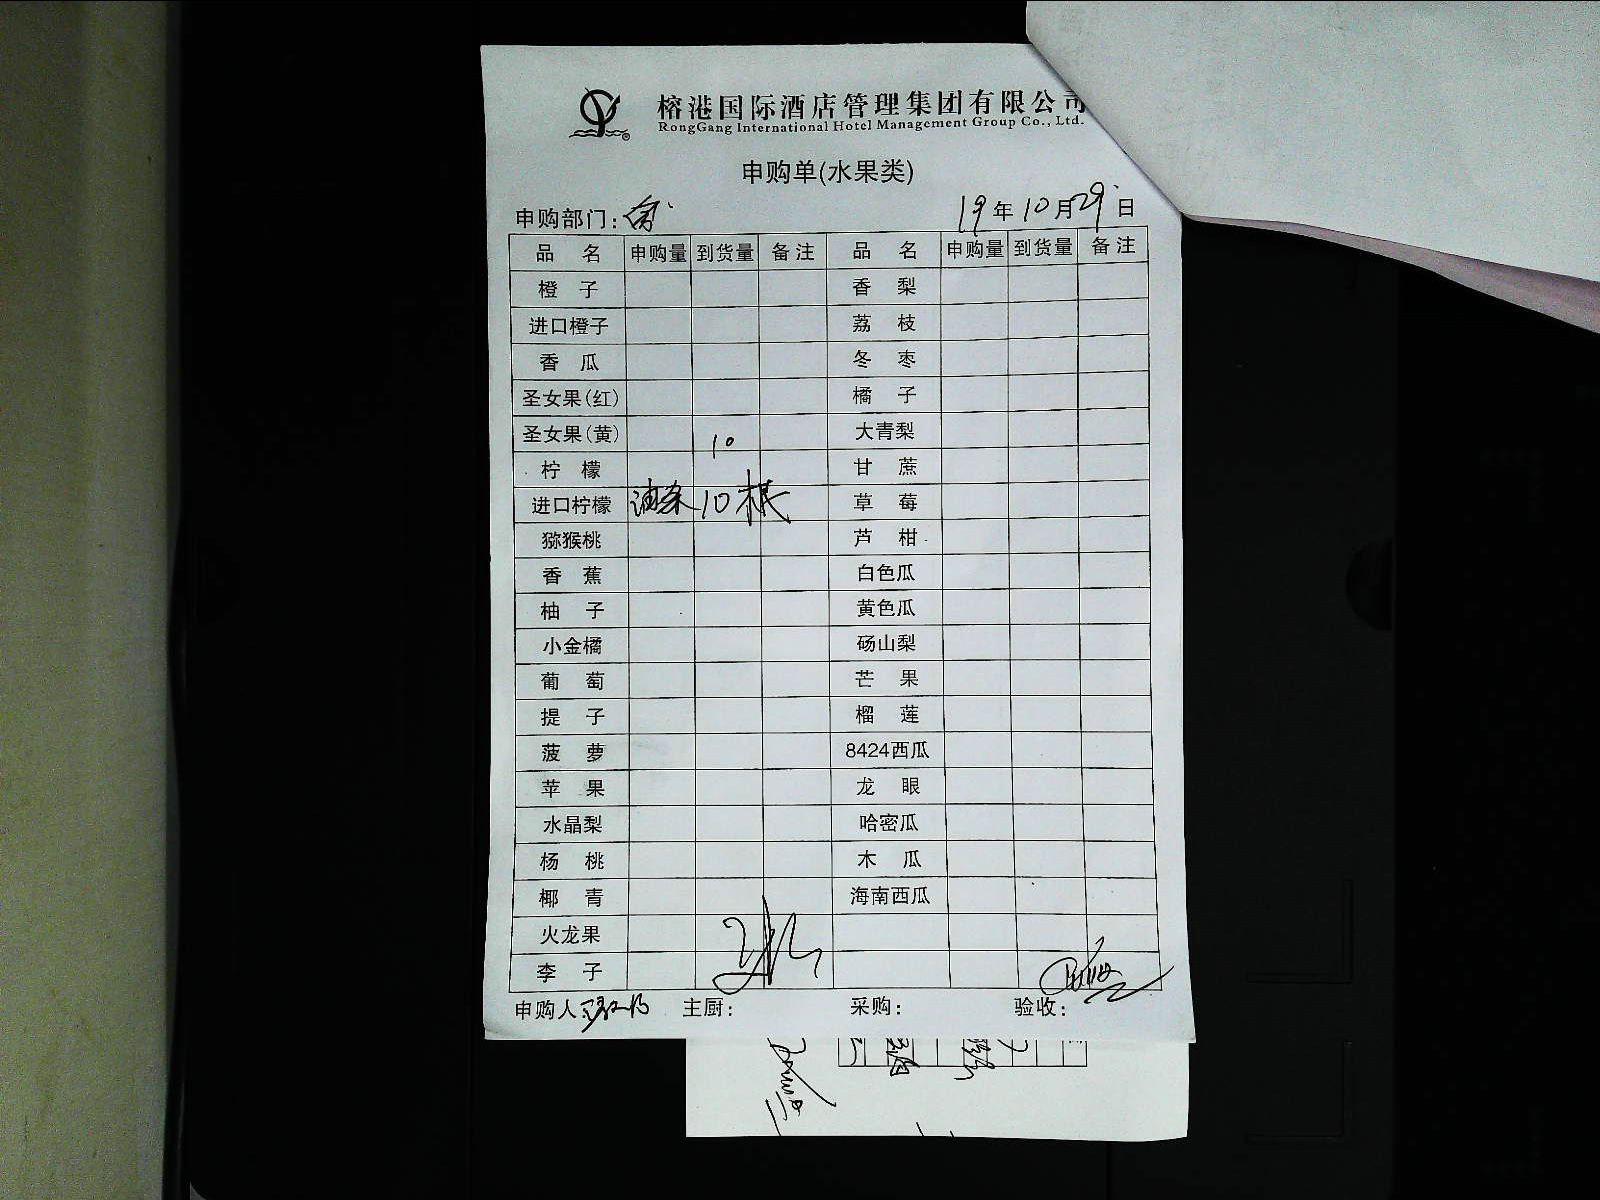 榕港国际酒店管理集团有限公司
RongGang International Hotel Management Group Co., Ltd.
申购单(水果类)
申购部门: 19年10月29日
品名 申购量 到货量 备注 品名 申购量 到货量 备注
橙子 香梨
进口橙子 荔枝
香瓜 冬枣
圣女果(红) 橘子
圣女果(黄) 10 大青梨
柠檬 甘蔗
进口柠檬 油条10根 草莓
猕猴桃 芦柑
香蕉 白色瓜
柚子 黄色瓜
小金橘 砀山梨
葡萄 芒果
提子 榴莲
菠萝 8424西瓜
苹果 龙眼
水晶梨 哈密瓜
杨桃 木瓜
椰青 海南西瓜
火龙果
李子
申购人: 主厨: 采购: 验收: